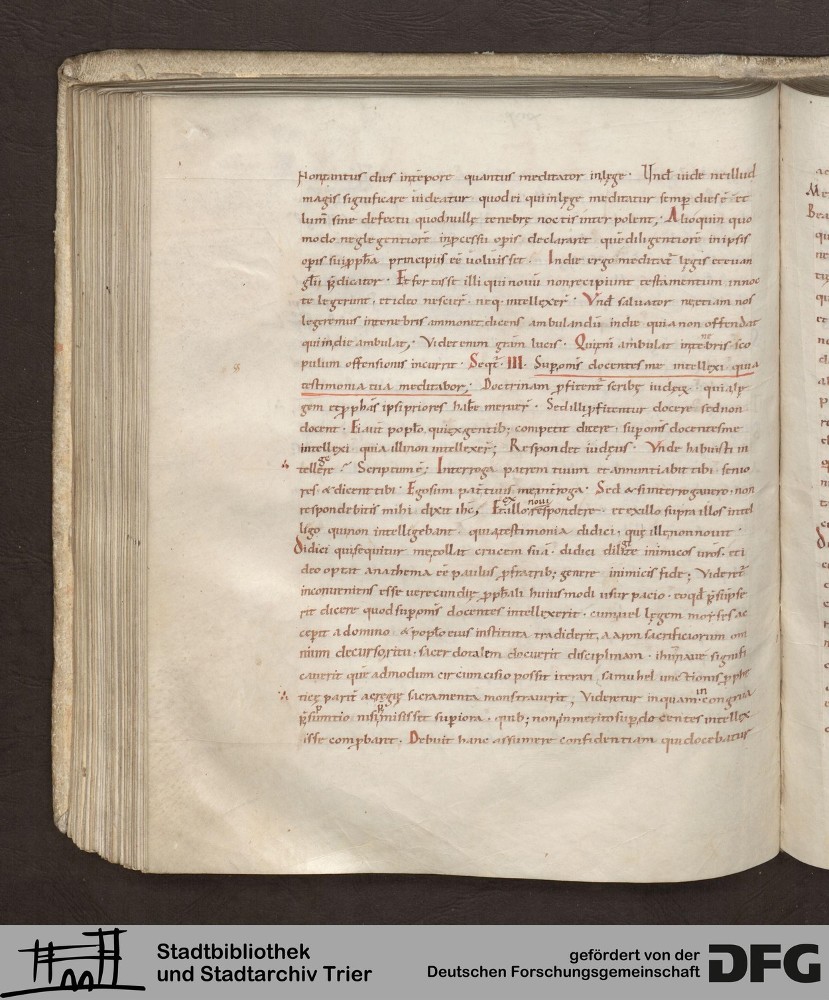 Non tantus dies in tēpore quantus meditator in lęge · Und̄ uide ne illud
magis significare uideatur quod ei qui in lęge meditatur semp̱ dies ē et
lum̄ sine defectu quod nullę tenebrę noctis inter polent; Alioquin quo
modo neglegentiorē in p̱cessu opis declararet quē diligentiorē in ipsis
op̱is sui p̱pħa principiis eē uoluisset · In die ergo meditat̄ lęgis et euan
glīi p̄dicator · Et fortasse illi qui nouū non recipiunt testamentum in noc
te legerunt · et ideo nescier̄ · neq· intellexer̄ · Vnd̄ saluator ne etiam nos
legeremus in tenebris ammonet dicens ambulandū in die quia non offendat
qui in die ambulat; Videt enim gr̄am lucis · Qui enī ambulat in tenebris · sco
ne
pulum offensionis incurrit · Seqt̄ · III · Sup omīs docentes me intellexi quia
testimonia tua meditabor; Doctrinam p̱fitent̄ scribę iudęis · qui alę
gem et p̱phās ipsi priores hab̄e meruer̄ · Sed illi p̱fitentur docere sed non
docent · Ei aut̄ poplo qui ex gentib; competit dicere · sup omīs docentes me
intellexi · quia illi non intellexer̄; Respondet iudęus · Vnde habuisti in
tellegere? Scriptum ē; Interroga patrem tuum et annuntiabit tibi · senio
res & dicent tibi · Ego sum pat̄ tuus me int̄roga · Sed & si interrogauero · non
respondebitis mihi dixit iħc; Ex illo noui respondere · et ex illo supra illos intel
ligo qui non intelligebant · quia testimonia didici · quę ille non nouit ·
Didici qui sequitur me tollat crucem suā · didici diligite inimicos uros · et i
deo optat anathema eē paulus p̱ fratrib; genere inimicis fide; Videret̄
inconueniens esse uerecundię p̱phetali huius modi usurpacio · eo qđ p̄sūpse
rit dicere quod sup omīs docentes intellexerit · cum uel lęgem moyses ac
cepit a domino & poplo eius instituta tradiderit, aaron sacrificiorum om
nium decurso ritu · sacerdotalem docuerit disciplinam · ihū naue signifi
cauerit quē admodum circumcisio possit iterari samuhel unctionis p̱phe
ticę parit̄ ac regię sacramenta monstrauerit, Videretur inquam incongrua
p̄sumtio nisi p̱misisset sup̱iora · quib; non inmerito sup̱ docentes intellex
isse comp̱bant · Debuit hanc assumere confidentiam qui docebatur
Stadtbibliothek
und Stadtarchiv Trier
gefördert von der
Deutschen Forschungsgemeinschaft
DFG